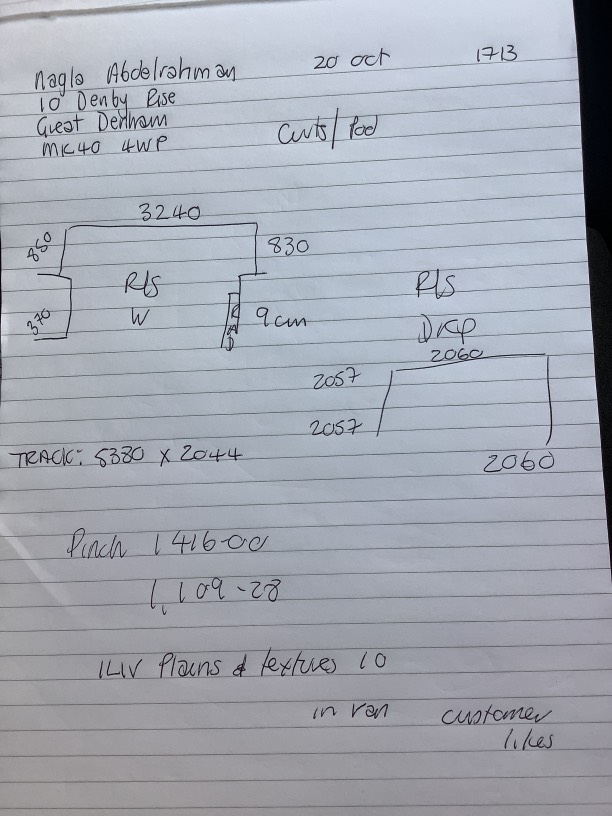 Nagla Abdelrahman 20 oct 1713
10 Denby Rise
Great Denham
MK40 4WP
Curts/Pod
3240
860
830
R/S
W
370
RAD
9cm
R/S
DRP
2060
2057
2057
2060
TRACK: 5380 x 2044
Pinch 1416-00
1,109-28
ILIV Plains & textures 10
in van customer
likes